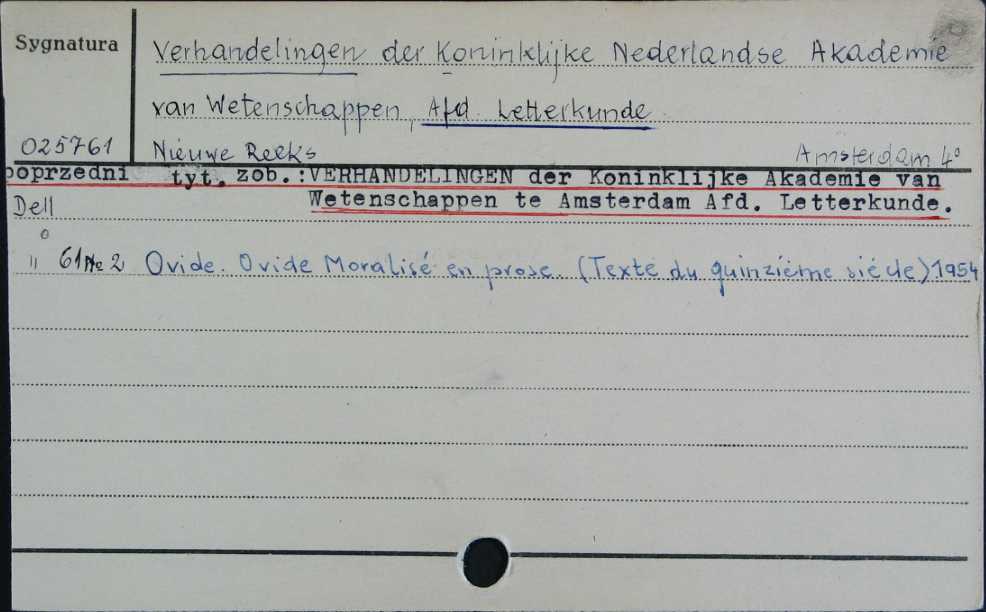 Sygnatura
Verhandelingen der Koninklijke Nederlandse Akademie
van Wetenschappen, Afd. Letterkunde
025761
Nieuwe Reeks
Amsterdam 4°
poprzedni tyt. zob.: VERHANDELINGEN der Koninklijke Akademie van
Wetenschappen te Amsterdam Afd. Letterkunde.
Dell
" 61 № 2 Ovide. Ovide Moralisé en prose (Texte du quinzième siécle) 1954